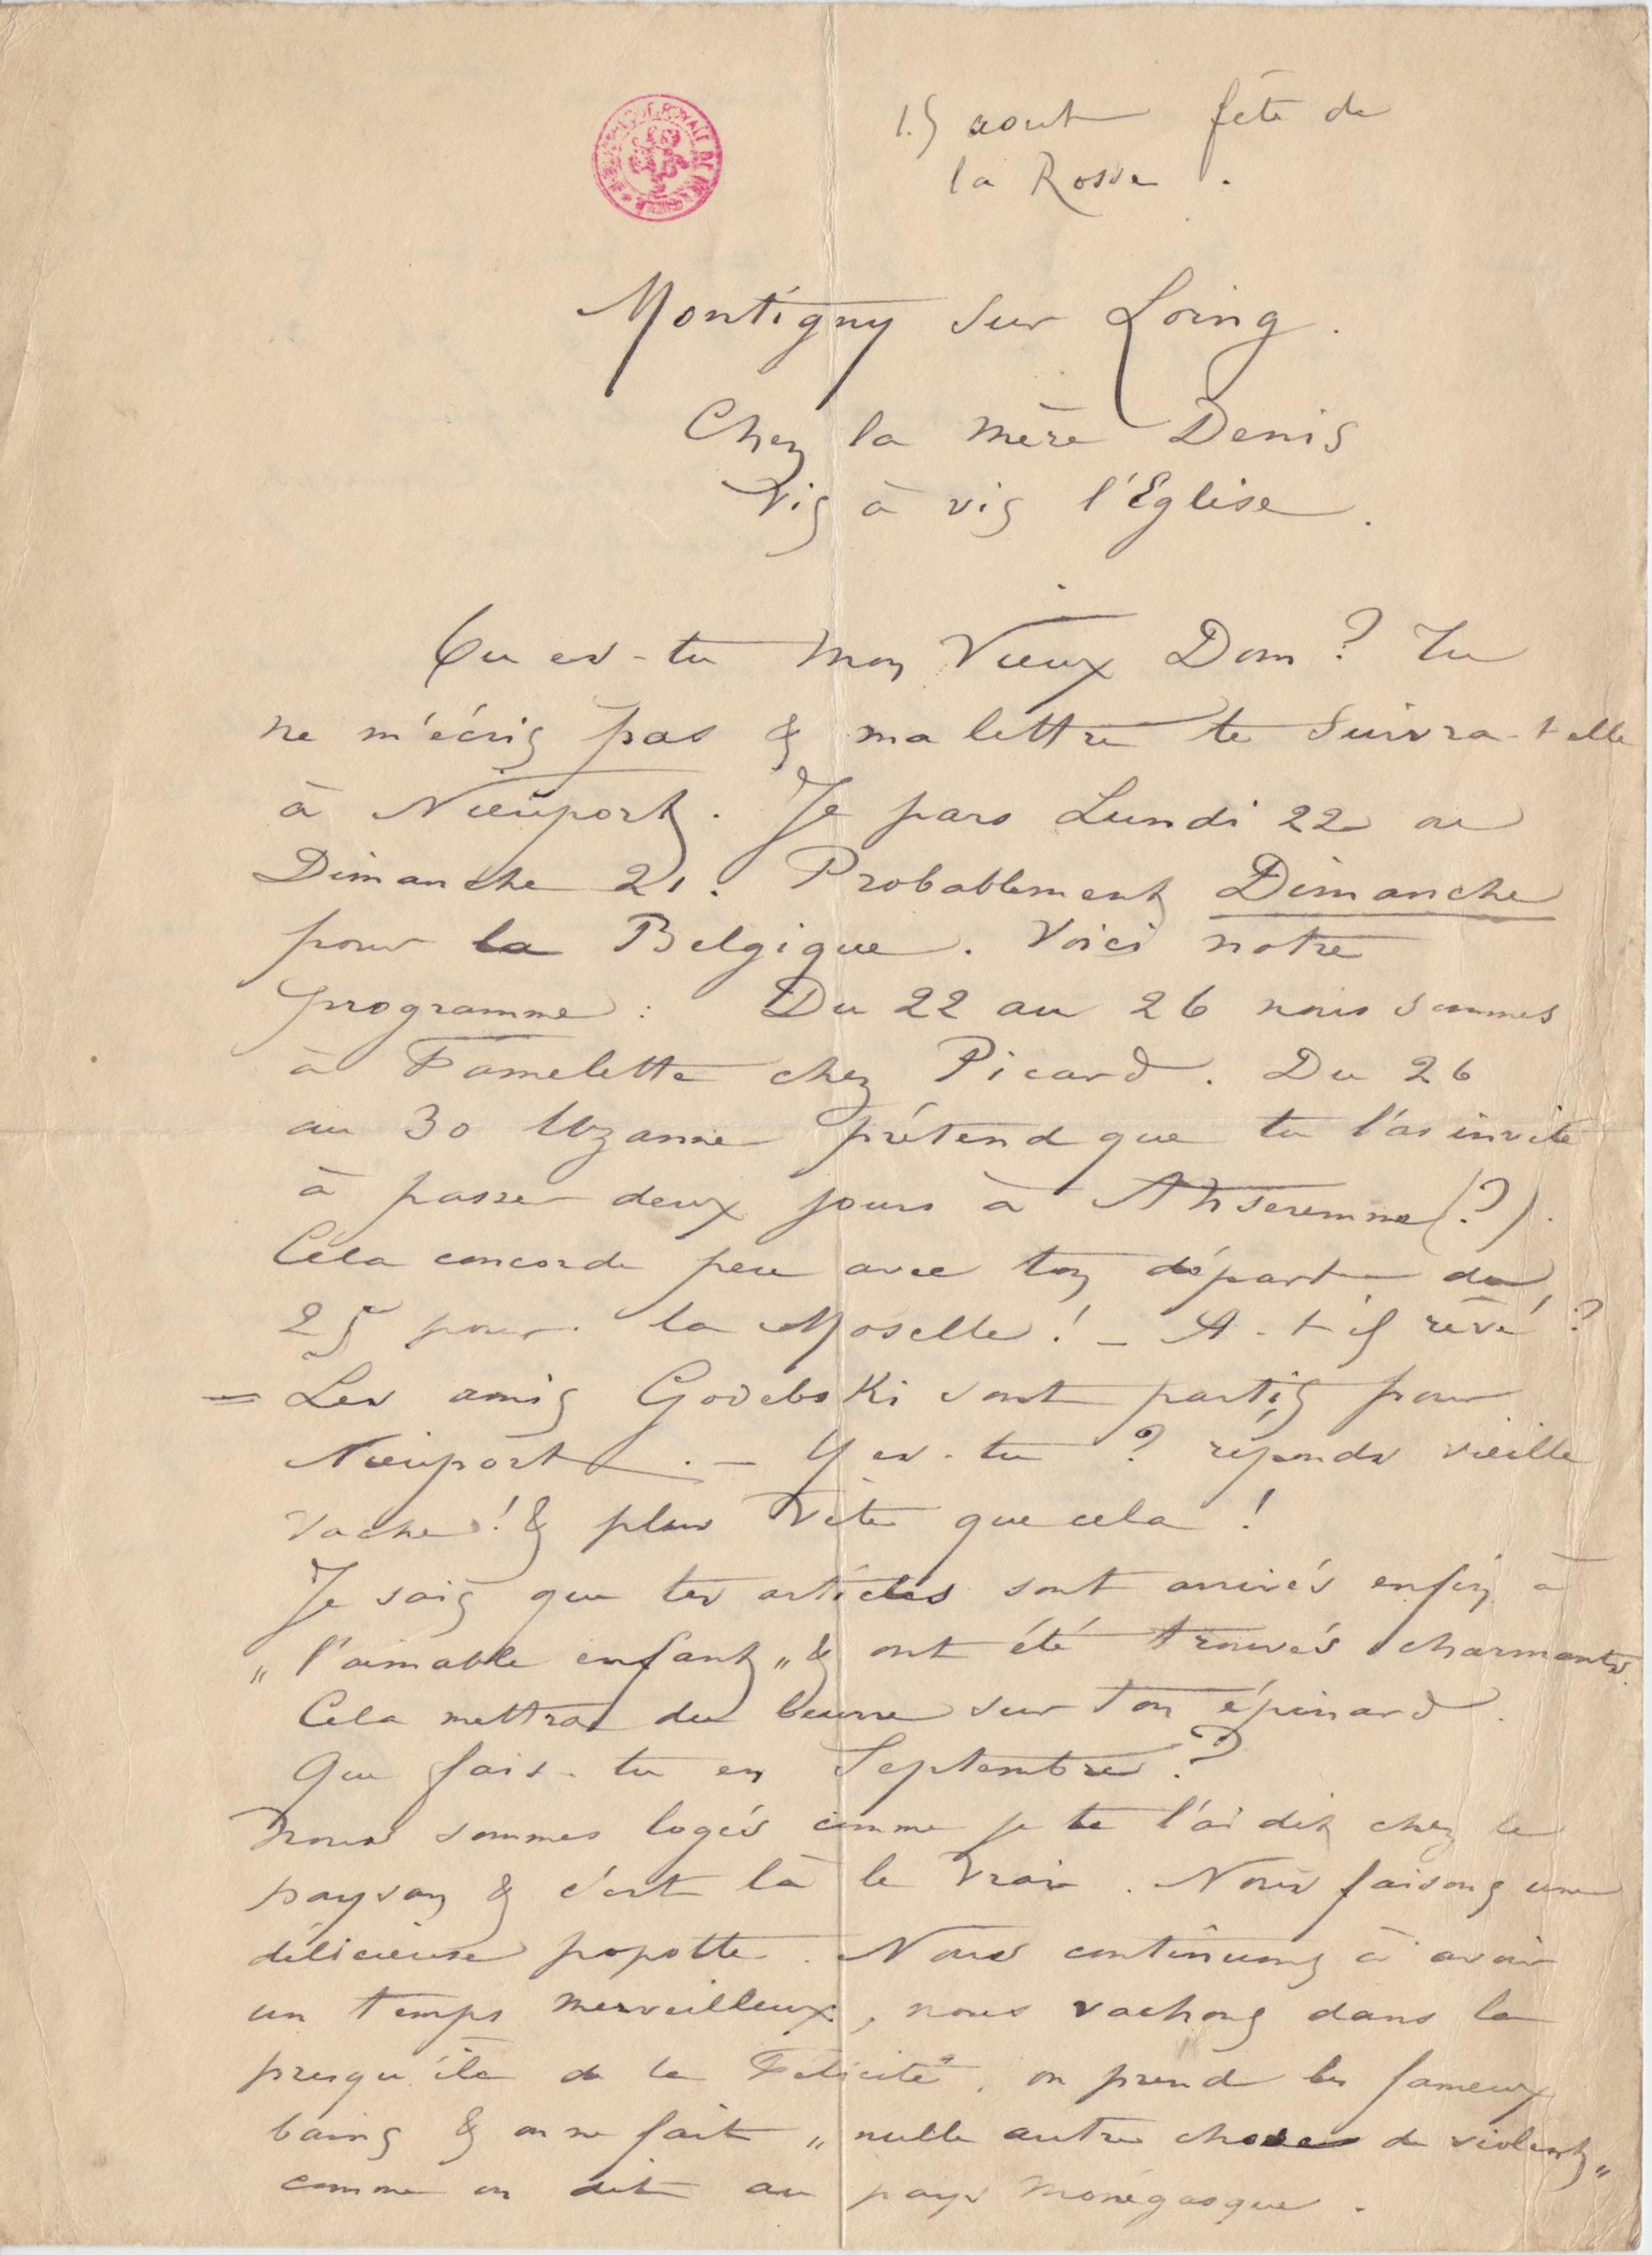 15 aout fête de
la Rosse.
Montigny sur Loing.
Chez la mère Denis
Vis à vis l'Eglise.
Ou es-tu mon Vieux Dom? Tu
ne m'écris pas & ma lettre te suivra-t-elle
à Nieuport. Je pars Lundi 22 ou
Dimanche 21. Probablement Dimanche
pour la Belgique. Voici notre
programme: Du 22 au 26 nous sommes
à Famelette chez Picard. Du 26
au 30 Uzanne prétend que tu l'as invité
à passer deux jours à Anseremme (?).
Cela concorde peu avec ton départ du
25 pour la Moselle! — A-t-il rêvé?
= Les amis Godebski sont partis pour
Nieuport. — Y es-tu? réponds vieille
vache! & plus vite que cela!
Je sais que tes articles sont arrivés enfin à
„l'aimable enfant„ & ont été trouvés charmants.
Cela mettra du beurre sur ton épinard.
Que fais-tu en Septembre?
Nous sommes logés comme je te l'ai dit chez le
paysan & c'est là le vrai. Nous faisons une
délicieuse popotte. Nous continuons à avoir
un temps merveilleux, nous vachons dans la
presqu'île de la Félicité, on prend les fameux
bains & on ne fait „nulle autre chose de violent„
comme on dit au pays monégasque.